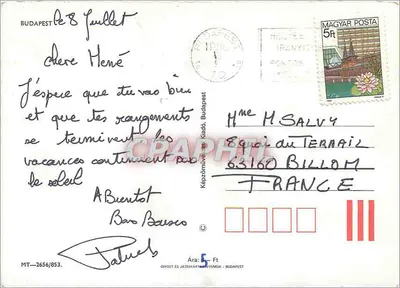 BUDAPEST le 8 Juillet
chere Mené
J'espere que tu vas bien
et que tes rangements
se terminent les
vacances continuent sous
le soleil
A Bientot
Bons Baisers
MT—2656/853.
Képzőművészeti Kiadó, Budapest
Ára: 5,- Ft
OFFSET ÉS JÁTÉKKÁRTYA NYOMDA - BUDAPEST
BUDAPEST
MAGYAR POSTA
5Ft
Mme M SALVY
8 quai du TERRAIL
63160 BILLOM
FRANCE
CPAPHIL